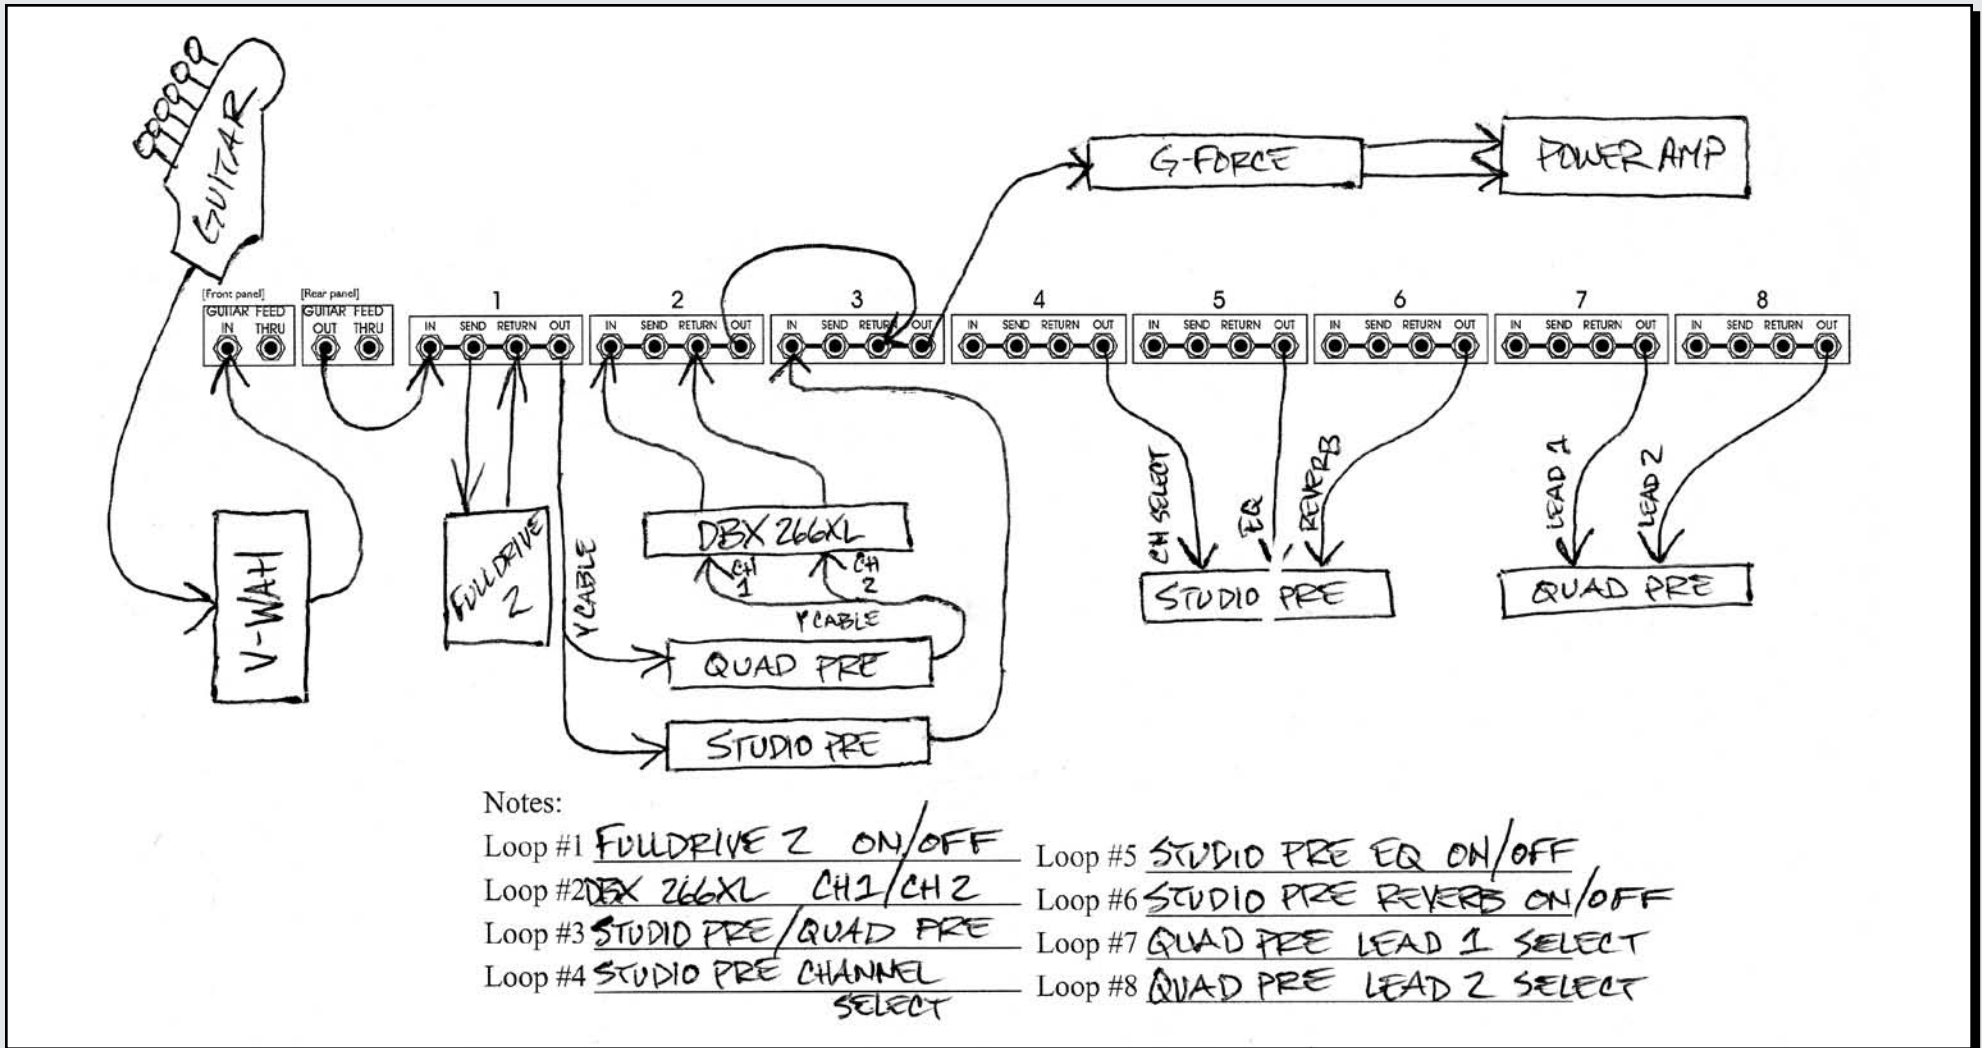 GUITAR
G-FORCE
POWER AMP
[Front panel]
[Rear panel]
GUITAR FEED
IN THRU
GUITAR FEED
OUT THRU
1
2
3
4
5
6
7
8
IN SEND RETURN OUT
IN SEND RETURN OUT
IN SEND RETURN OUT
IN SEND RETURN OUT
IN SEND RETURN OUT
IN SEND RETURN OUT
IN SEND RETURN OUT
IN SEND RETURN OUT
V-WAH
FULLDRIVE
2
Y CABLE
DBX 266XL
CH
1
CH
2
Y CABLE
QUAD PRE
STUDIO PRE
CH SELECT
EQ
REVERB
STUDIO PRE
LEAD 1
LEAD 2
QUAD PRE
Notes:
Loop #1 FULLDRIVE 2 ON/OFF
Loop #2 DBX 266XL CH1/CH2
Loop #3 STUDIO PRE/QUAD PRE
Loop #4 STUDIO PRE CHANNEL
SELECT
Loop #5 STUDIO PRE EQ ON/OFF
Loop #6 STUDIO PRE REVERB ON/OFF
Loop #7 QUAD PRE LEAD 1 SELECT
Loop #8 QUAD PRE LEAD 2 SELECT